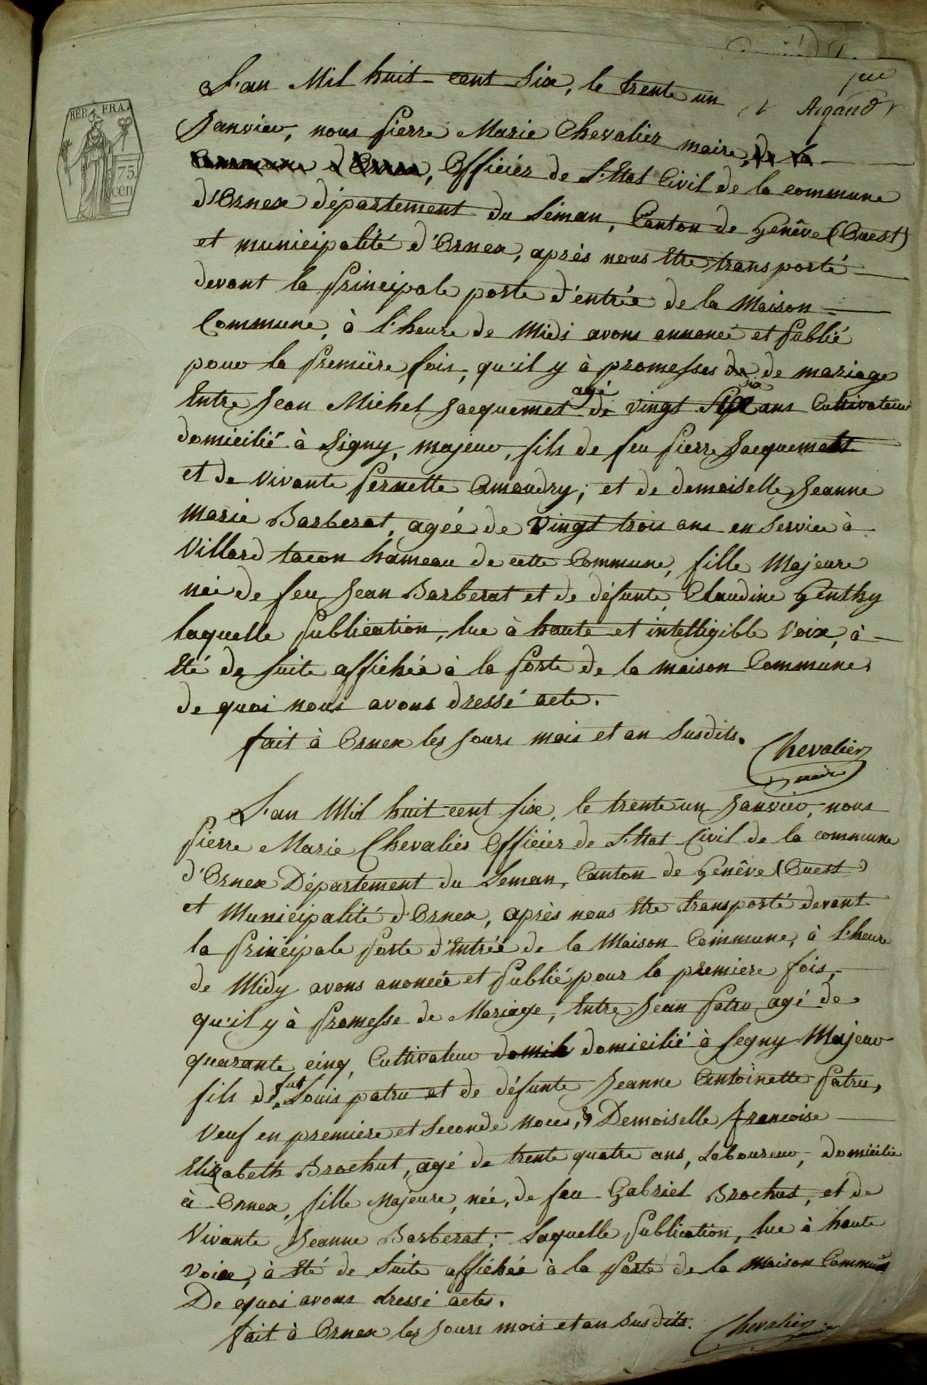 REP. FRA.
75
cen
L'an Mil huit cent Six, le trente un
Argaud
Janvier, nous pierre Marie Chevalier maire, de la
Commune d'Ornex, Officier de l'Etat Civil de la commune
d'Ornex département du Léman, Canton de Genève (Ouest)
et municipalité d'Ornex, après nous Etre transporté
devant la principale porte d'entrée de la Maison
Commune, à l'heure de Midi avons annoncé et publié
pour la premiere fois, qu'il y à promesses de de mariage
Entre Jean Michel Jacquemet agé de vingt six ans Cultivateur
domicilié à Signy, majeur, fils de feu pierre Jacquemet
et de vivante pernette Amaudry; et de demoiselle Jeanne
Marie Barberat, agée de vingt trois ans en service à
Villard tacon hameau de cette Commune, fille Majeure
née de feu Jean Barberat et de défunte Claudine Genthy
laquelle publication, lue à haute et intelligible Voix, à
Eté de suite affichée à la porte de la maison Commune,
de quoi nous avons dressé acte.
fait à Ornex les Jours mois et an susdits.
Chevalier
maire
L'an Mil huit cent six, le trente un Janvier, nous
pierre Marie Chevalier Officier de l'Etat Civil de la commune
d'Ornex Département du Leman, Canton de Genêve (Ouest)
et Municipalité d'Ornex, après nous Etre transporté devant
la principale porte d'Entrée de la Maison Commune, à l'heure
de Midy avons anoncée et publié pour la premiere fois,
qu'il y à promesse de Mariage, Entre Jean patru agé de
quarante cinq, Cultivateur domicilié à Segny Majeur
fils de feu Louis patru et de défunte Jeanne Antoinette patru,
Veuf en premiere et seconde noces, & Demoiselle francoise
Elizabeth Brochut, agé de trente quatre ans, Laboureur, domicilie
à Ornex, fille Majeure, née, de feu Gabriel Brochut, et de
Vivante Jeanne Barberat; Laquelle publication, lue à haute
voix, à Eté de suite affichée à la porte de la maison Commune
De quoi avons dressé actes.
fait à Ornex les Jours mois et an susdits.
Chevalier